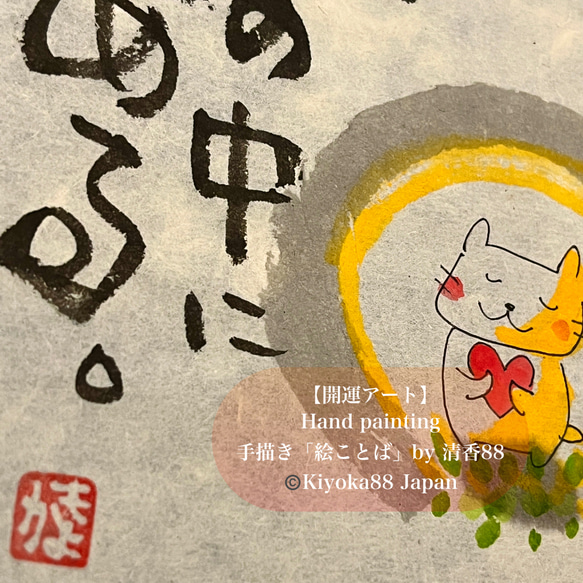 の中に
ある。
【開運アート】
Hand painting
手描き「絵ことば」by 清香88
©Kiyoka88 Japan
きよか